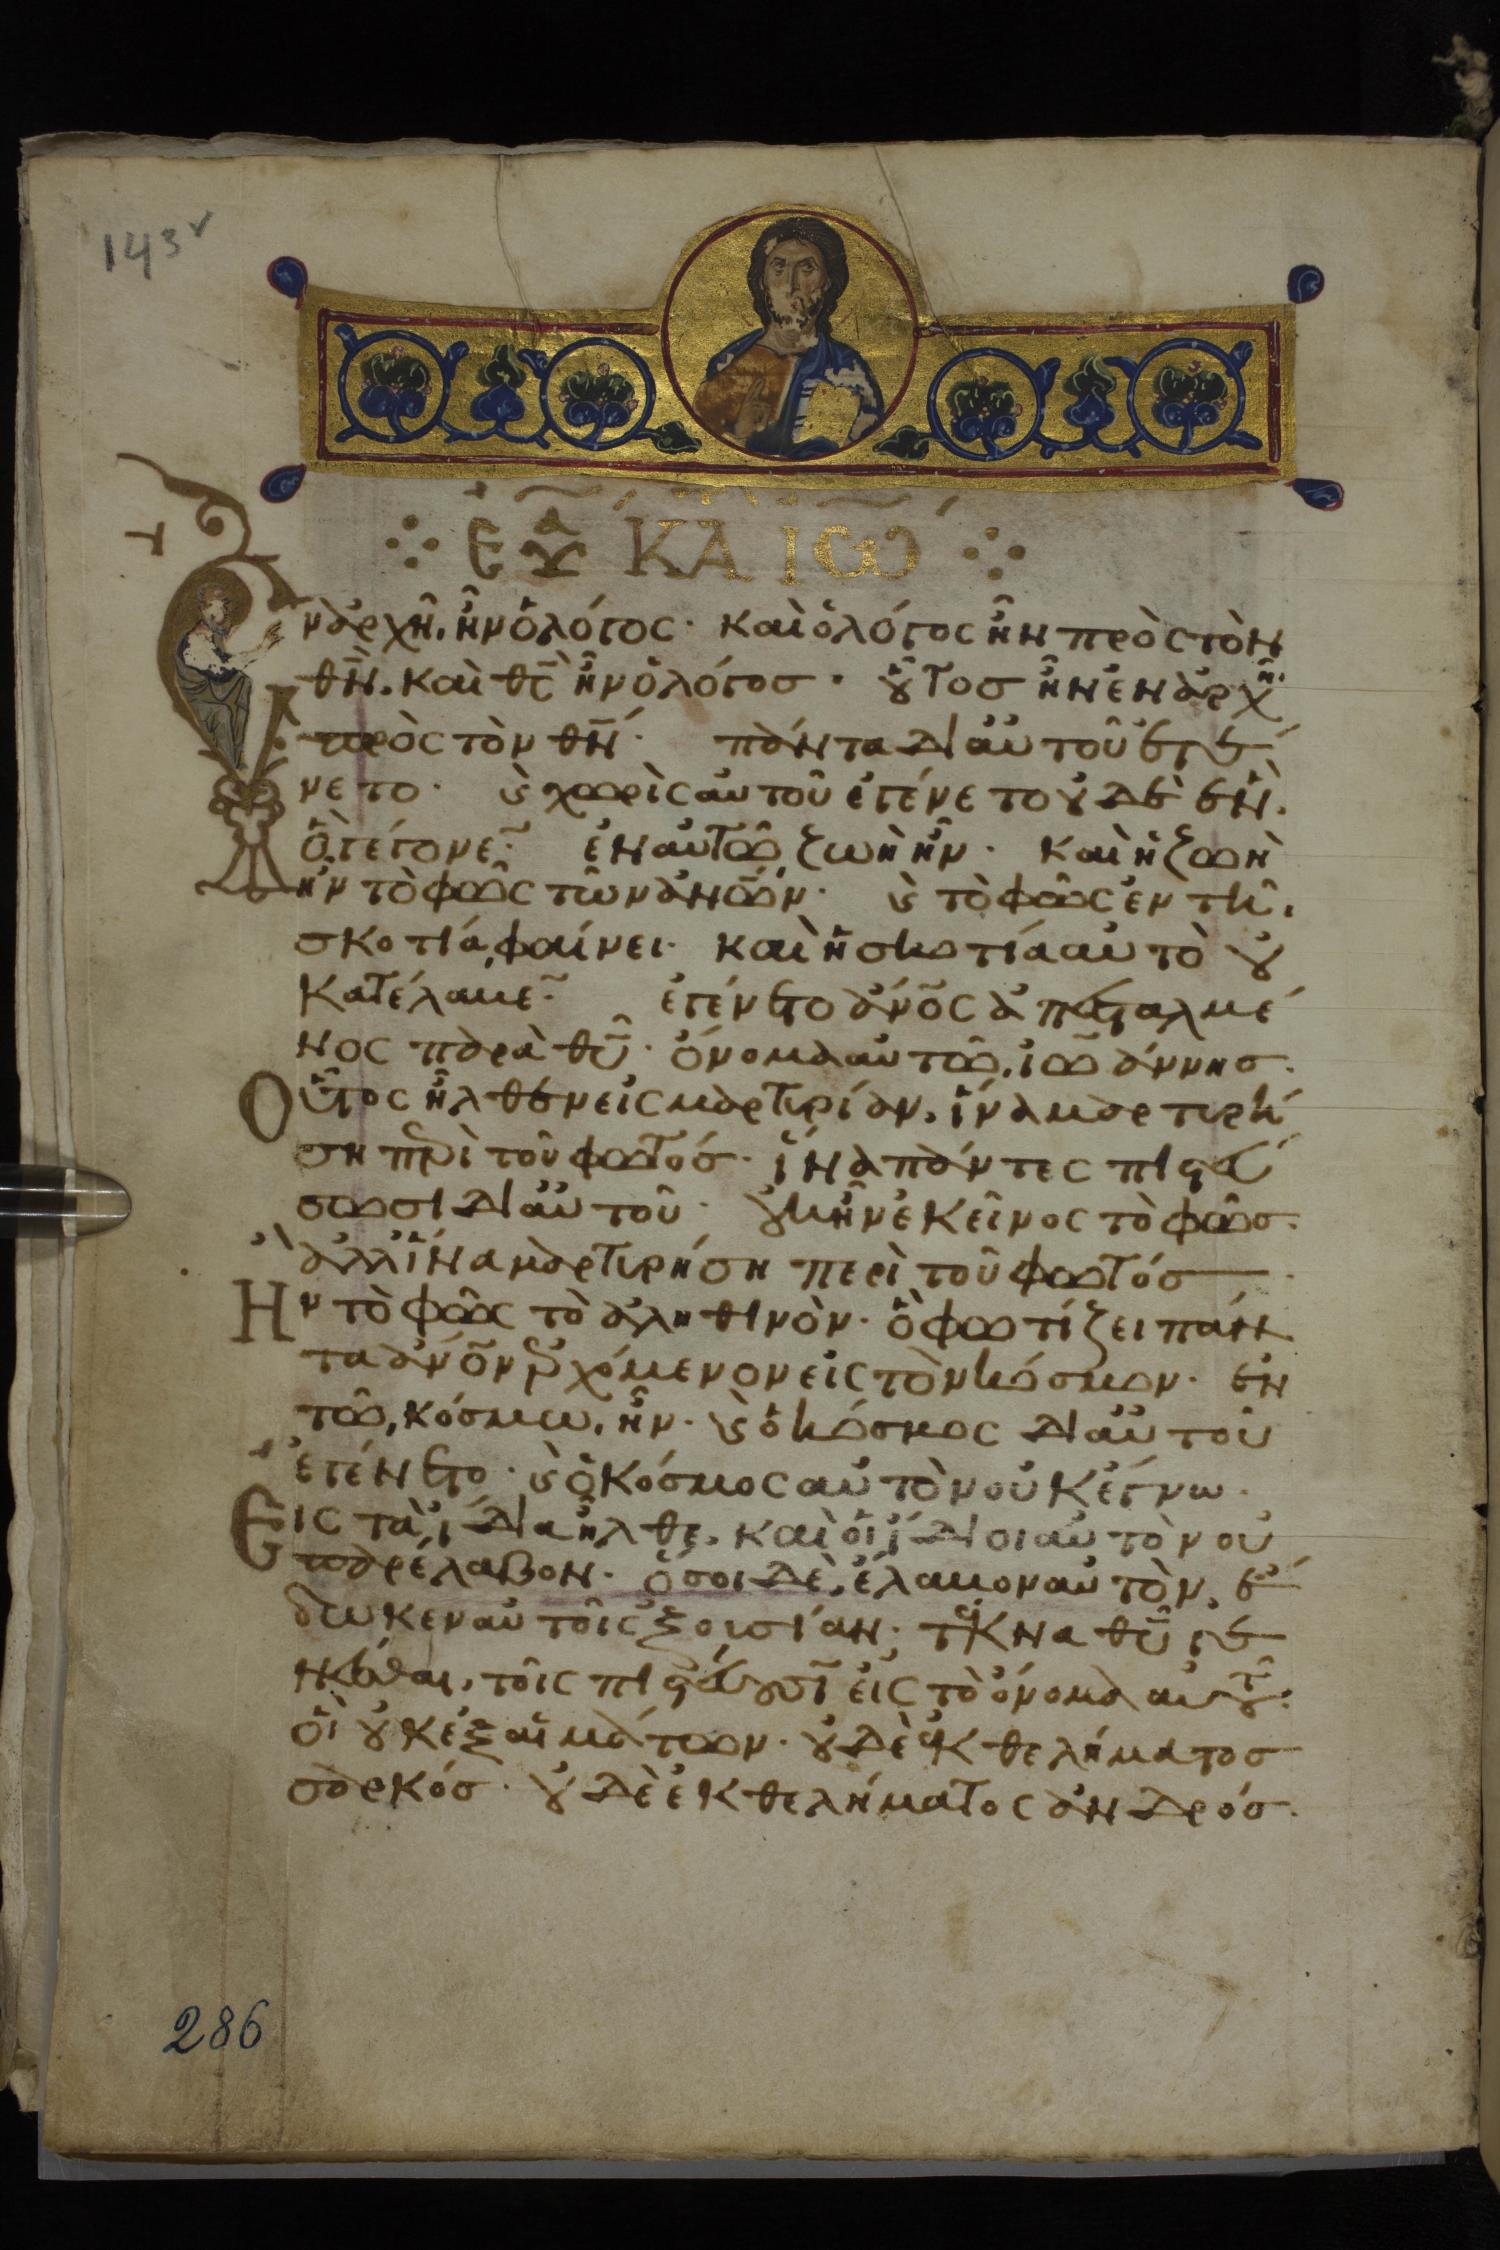 143v
ΕΥΑ ΚΑΤ ΙΩ
Ἐν ἀρχῆ, ἦν ὁ λόγος· καὶ ὁ λόγος ἦν πρὸς τὸν
θν̄. καὶ θς̄ ἦν ὁ λόγος· οὗτος ἦν ἐν ἀρχῆ
πρὸς τὸν θν̄· πάντα δι αὐτοῦ ἐγέ
νετο· ϗ χωρὶς αὐτοῦ ἐγένετο οὐδὲ ἓν.
ὃ γέγονε~ ἐν αὐτῶ, ζωὴ ἦν· καὶ ἡ ζωὴ
ἦν τὸ φῶς τῶν ἀν̄ων· ϗ τὸ φῶς ἐν τῆ,
σκοτία, φαίνει· καὶ ἡ σκοτία αὐτὸ οὐ
κατέλαβε~ ἐγένετο ἄν̄ος ἀπεσταλμέ
νος παρὰ θῡ· ὄνομα αὐτῶ, ἰωάννης.
Οὗτος ἦλθεν εἰς μαρτυρίαν, ἵνα μαρτυρή
ση περὶ τοῦ φωτός· ἵνα πάντες πιστεύ
σωσι δι αὐτοῦ· οὐκ ἦν ἐκεῖνος τὸ φῶς.
ἀλλ ἵνα μαρτυρήση περὶ τοῦ φωτός
Ην τὸ φῶς τὸ ἀληθινὸν· ὃ φωτίζει πάν
τα ἄν̄ον ἐρχόμενον εἰς τὸν κόσμον· ἐν
τῶ, κόσμω, ἦν· ϗ ὁ κόσμος δι αὐτοῦ
ἐγένετο· ϗ ὁ κόσμος αὐτὸν οὐκ ἔγνω·
Εἰς τὰ ἴδια ἦλθε, καὶ οἱ ἴδιοι αὐτὸν οὐ
παρέλαβον· ὅσοι δὲ, ἔλαβον αὐτὸν, ἔ
δωκεν αὐτοῖς ἐξουσίαν· τέκνα θῡ γε
νέσθαι, τοῖς πιστεύουσι~ εἰς τὸ ὄνομα αὐτοῦ·
οἳ οὐκ ἐξ αἱμάτων· οὐδὲ ἐκ θελήματος
σαρκός· οὐδὲ ἐκ θελήματος ἀνδρός.
286